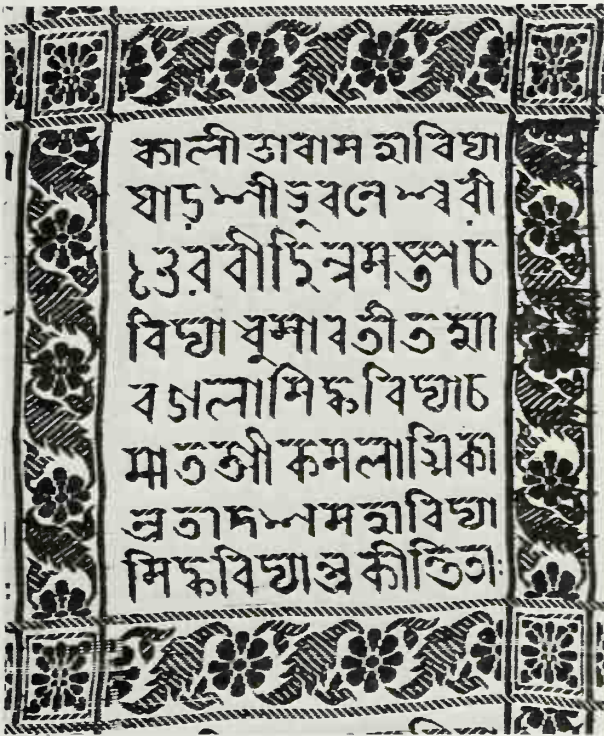 কালী তাৰাম হাবিদ্যা
ষাড়শী ভুবনেশ্বৰী
ভৈৰবী ছিন্নমস্তাচ
বিদ্যা ধুমাবতী তথা
বগলা সিদ্ধবিদ্যাচ
মাতঙ্গী কমলাত্মিকা
এতা দশ মহাবিদ্যা
সিদ্ধবিদ্যা প্রকীর্ত্তিতা: